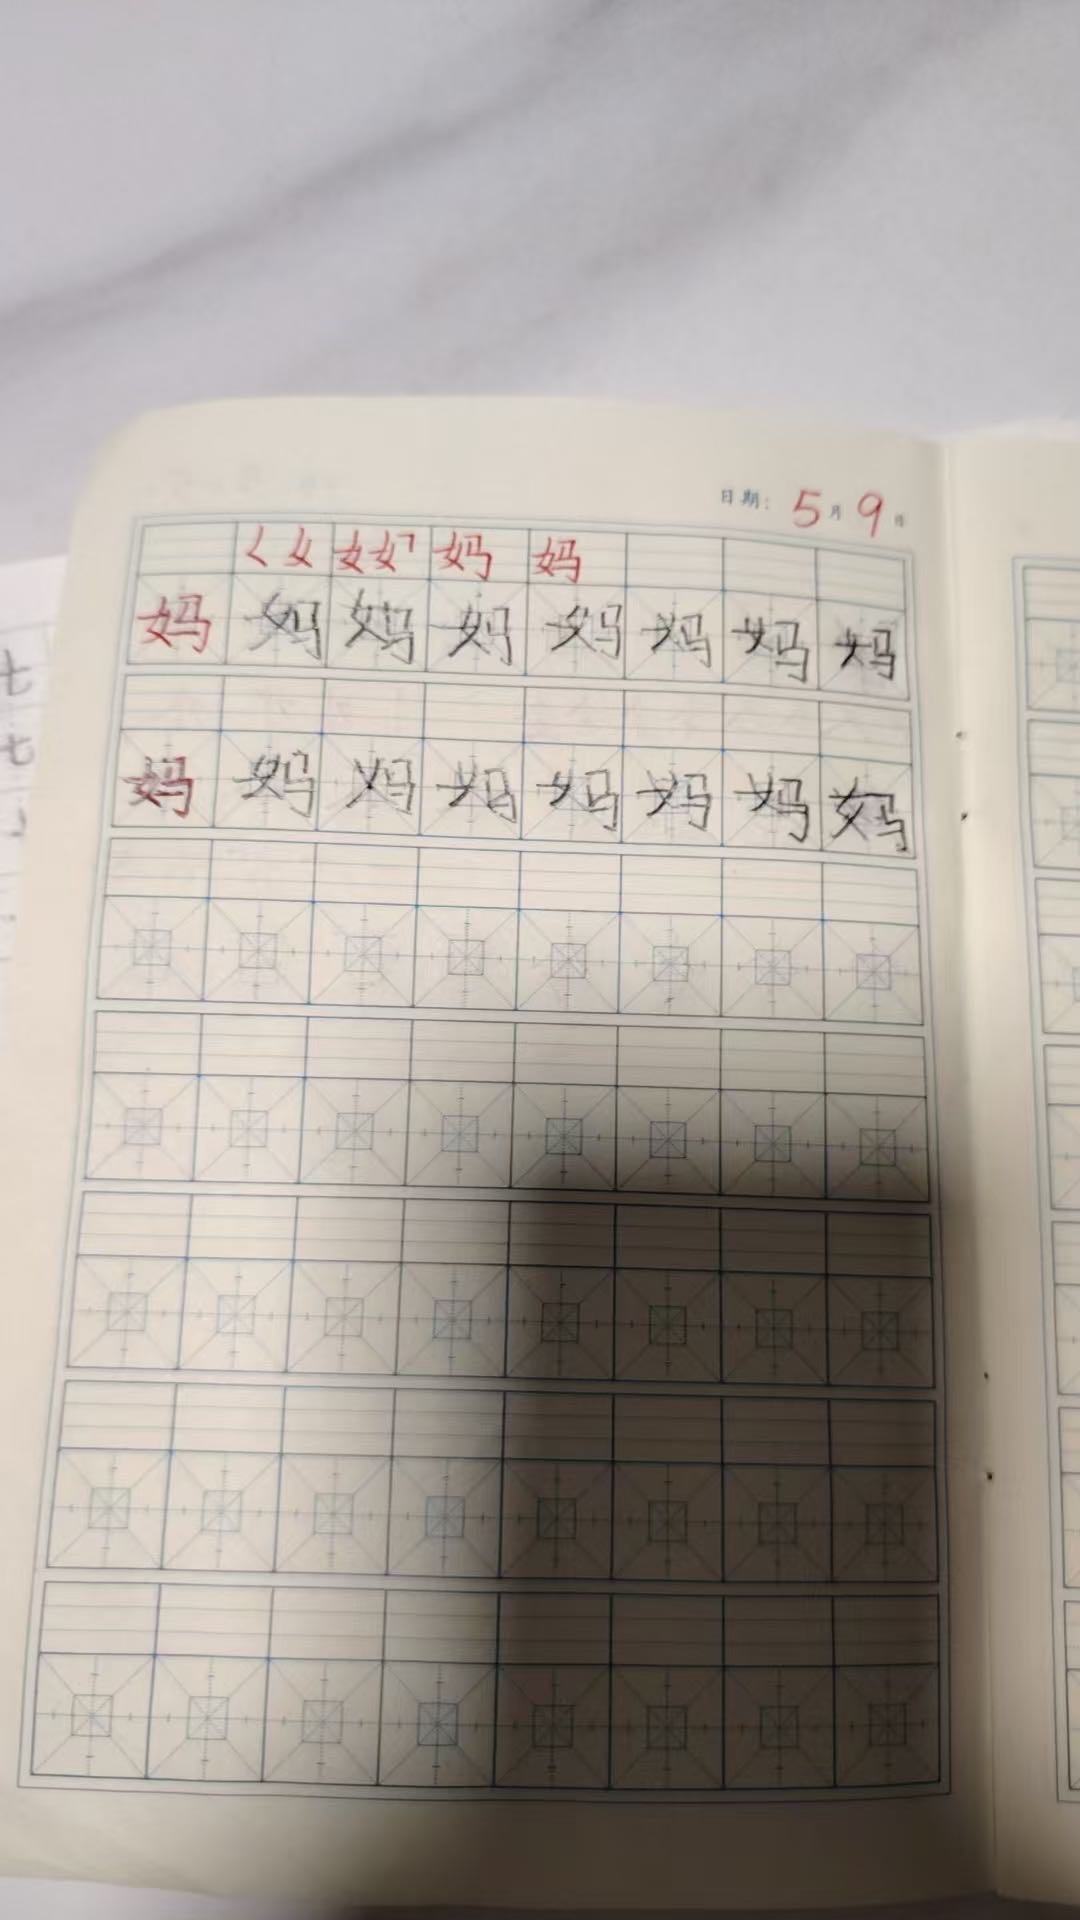 日期：5月9日
く 女 女 女㇆ 妈 妈
妈 妈 妈 妈 妈 妈 妈 妈
妈 妈 妈 妈 妈 妈 妈 妈
七
七